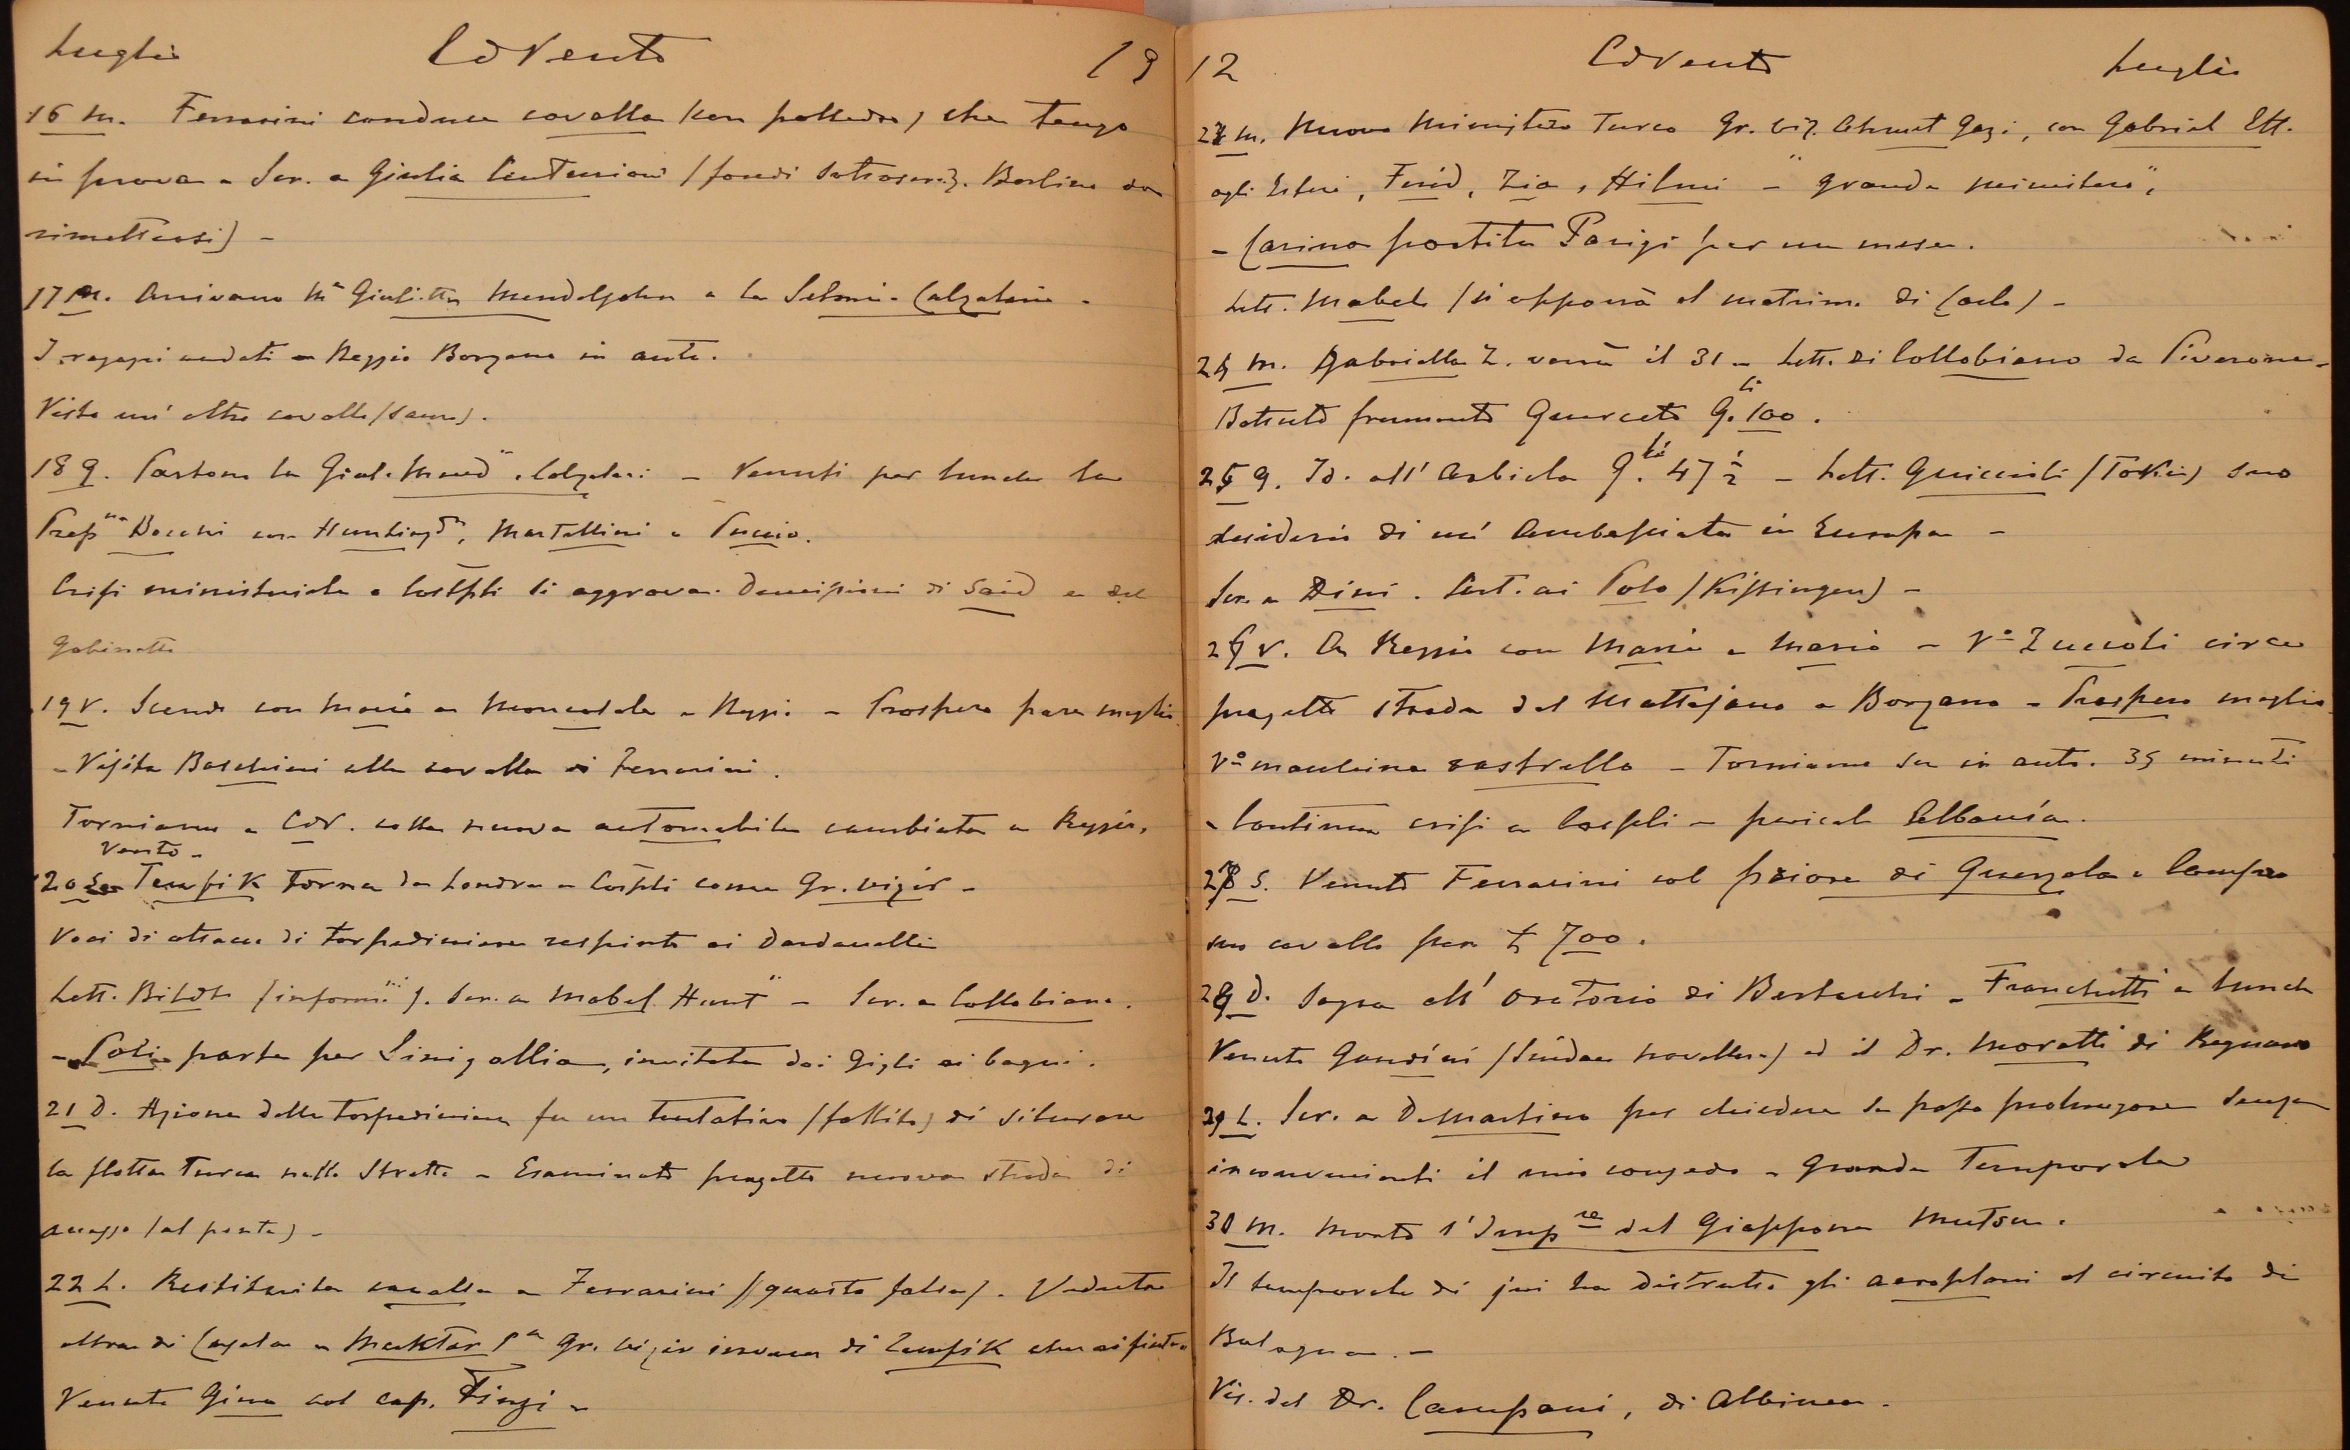 Luglio Cavento 19
16 M. Ferrarini conduce cavalla (con polledro) che tengo
in prova - Scr. a Giulia Centurioni (fondi sottoscriz. Berlino da
rimettersi) -
17 M. Arrivano Mª Giulietta Mendelssohn e la Calzolari -
I ragazzi andati a Reggio Borzano in auto.
Visto un' altro cavallo (sauro).
18 G. Partono la Giul. Mend. e Calzolari - Venuti per lunch la
Bocchi con Huntingd., Martellini e Puccio.
Crisi ministeriale a Costpli si aggrava. Dimissioni di Said e del
Gabinetto
19 V. Scendo con Maria a Moncasale e Reggio - Prospero pare meglio.
- Visita Boschini alla cavalla di Ferrarini.
Torniamo a Cav. colla nuova automobile cambiata a Reggio.
Vento -
20 S. Tewfik torna da Londra a Costpli come Gr. vizir -
Voci di attacco di torpediniere respinto ai Dardanelli
Lett. Bildt (inform.). Scr. a Mabel Hunt - Scr. a Collobiano.
- parte per Sinigallia, invitata dai Gigli ai bagni.
21 D. Azione delle torpediniere fu un tentativo (fallito) di silurare
la flotta Turca nello Stretto - Esaminato progetto nuova strada di
accesso (al ponte) -
22 L. Restituita cavalla a Ferrarini (guasta falsa). Veduta
altra di Casola - Muktar Pª Gr. vizir invece di Tewfik che rifiuta
Venuta Gina col cap. Finzi -
12 Cavento Luglio
23 M. Nuovo Ministero Turco Gr. viz. Ahmet Gazi, con Gabriel Eff.
agli Esteri, Ferid, Zia, Hilmi - "grande ministero",
- Carina partita Parigi per un mese.
Lett. Mabel (si opporrà al matrim. di Carlo) -
24 M. Gabriella Z. verrà il 31 - Lett. di Collobiano da Piverone -
Battuto frumento Querceto Q.li 100.
25 G. Id. all' Arbiola Q.li 47 ½ - Lett. Guiccioli (Tokio) suo
desiderio di un' Ambasciata in Europa -
Scr. a Dini. Cart. ai Polo (Kissingen) -
26 V. A Reggio con Maria e Mario - Vº Zuccoli circa
progetto strada del Mattajano a Borzano - Prospero meglio.
Vº macchina rastrello - Torniamo su in auto. 35 minuti
- Continua crisi a Costpli - pericolo Albania.
27 S. Venuto Ferrarini col priore di Querzola e compro
suo cavallo per £ 700.
28 D. Sagra all' Oratorio di Bertacchi - Franchetti a lunch
Venuto Gandini (Sindaco novello) ed il Dr. Moratti di Regnano
29 L. Scr. a Demartino per chiedere se posso prolungare senza
inconvenienti il mio congedo - Grande Temporale
30 M. Morto l'Impre del Giappone Mutsu.
Il temporale di jeri ha distrutto gli aeroplani al circuito di
Bologna. -
Vis. del Dr. Campani, di Albinea.